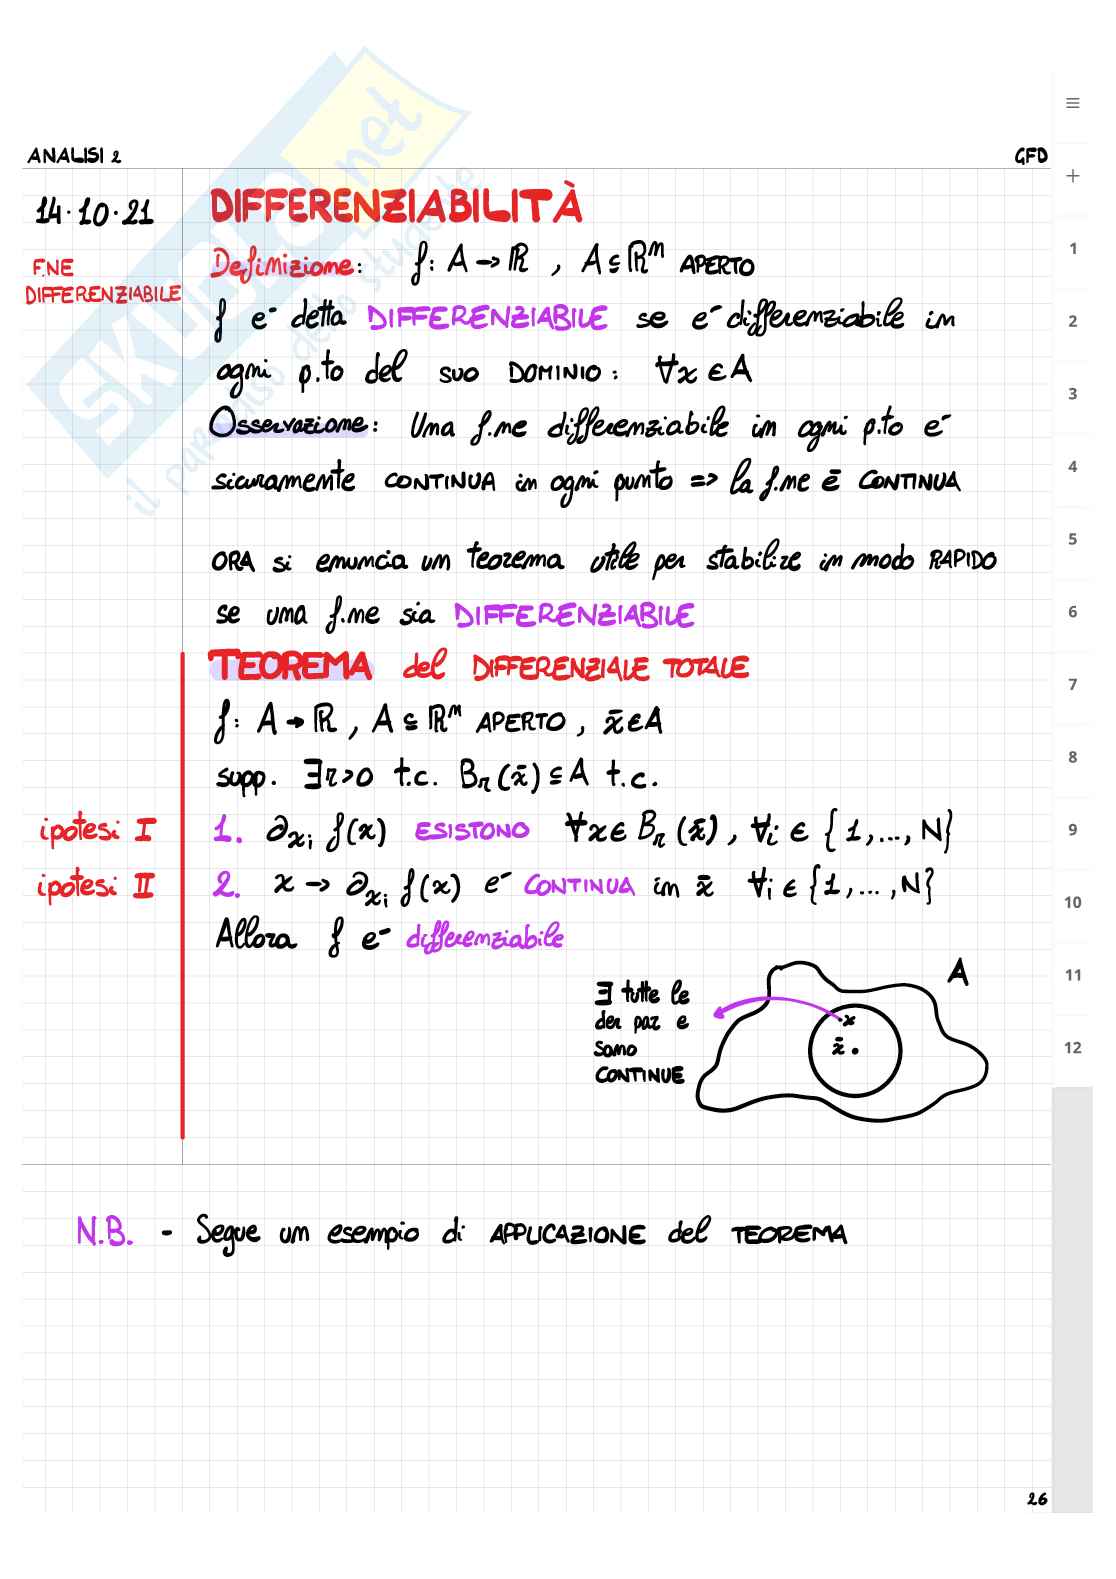 ANALISI 2
GFD
14·10·21
DIFFERENZIABILITÀ
F.NE
DIFFERENZIABILE
Definizione: f: A → ℝ , A ⊆ ℝⁿ APERTO
f e- detta DIFFERENZIABILE se e- differenziabile in
ogni p.to del suo DOMINIO: ∀x ∈ A
Osservazione: Una f.ne differenziabile in ogni p.to e-
sicuramente CONTINUA in ogni punto => la f.ne ē CONTINUA
ORA si enuncia un teorema utile per stabilire in modo RAPIDO
se una f.ne sia DIFFERENZIABILE
TEOREMA del DIFFERENZIALE TOTALE
f: A → ℝ , A ⊆ ℝⁿ APERTO , x̄ ∈ A
supp. ∃r>0 t.c. Bᵣ(x̄) ⊆ A t.c.
ipotesi I 1. ∂xᵢ f(x) ESISTONO ∀x ∈ Bᵣ(x̄) , ∀i ∈ {1,...,N}
ipotesi II 2. x → ∂xᵢ f(x) e- CONTINUA in x̄ ∀i ∈ {1,...,N}
Allora f e- differenziabile
A
∃ tutte le
der par e
sono
CONTINUE
x
x̄
N.B. - Segue un esempio di APPLICAZIONE del TEOREMA
26
SKUOLA.net
il paradiso dello studente
1
2
3
4
5
6
7
8
9
10
11
12